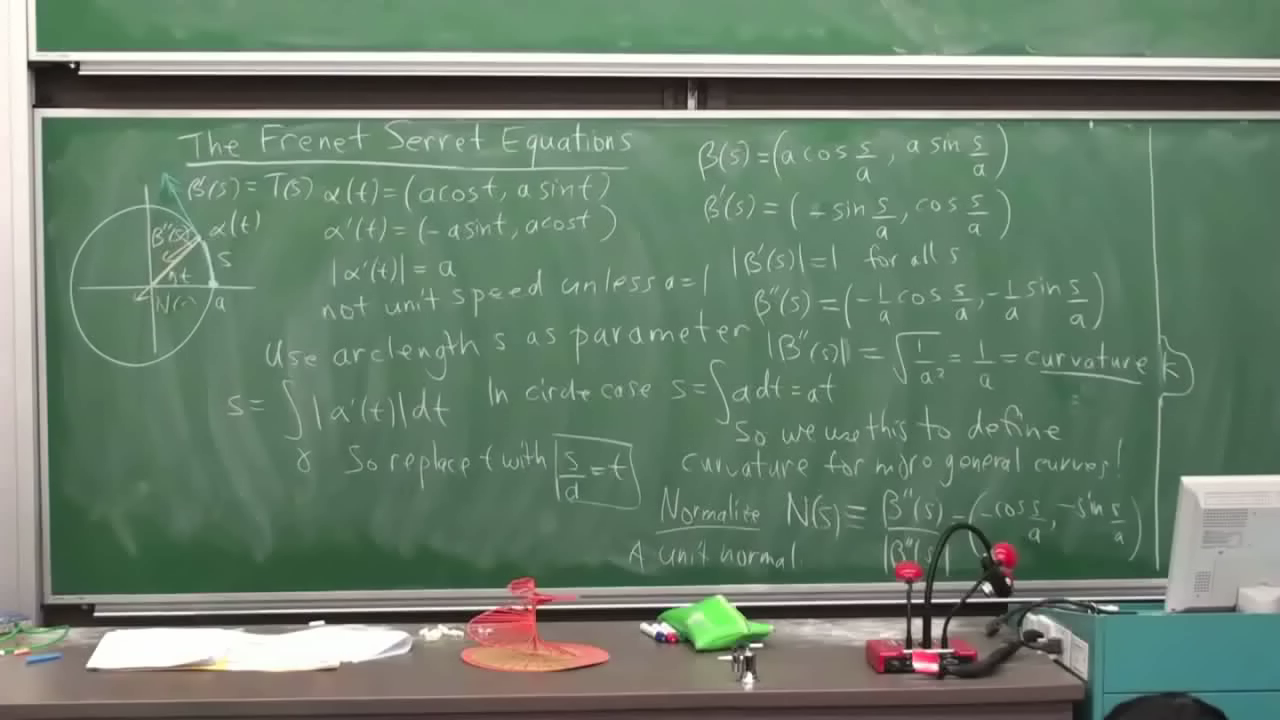 The Frenet Serret Equations
β'(s) = T(s)
α(t) = (a cos t, a sin t)
α(t)
β''(s)
s
t
a
α'(t) = (-a sin t, a cos t)
|α'(t)| = a
not unit speed unless a = 1
Use arclength s as parameter
s = ∫ |α'(t)| dt
γ
In circle case s = ∫ a dt = at
So replace t with s/a = t
β(s) = (a cos s/a, a sin s/a)
β'(s) = (-sin s/a, cos s/a)
|β'(s)| = 1 for all s
β''(s) = (-1/a cos s/a, -1/a sin s/a)
|β''(s)| = √(1/a²) = 1/a = curvature k
So we use this to define
curvature for more general curves!
Normalize N(s) ≡ β''(s)/|β''(s)| = (-cos s/a, -sin s/a)
A unit normal.